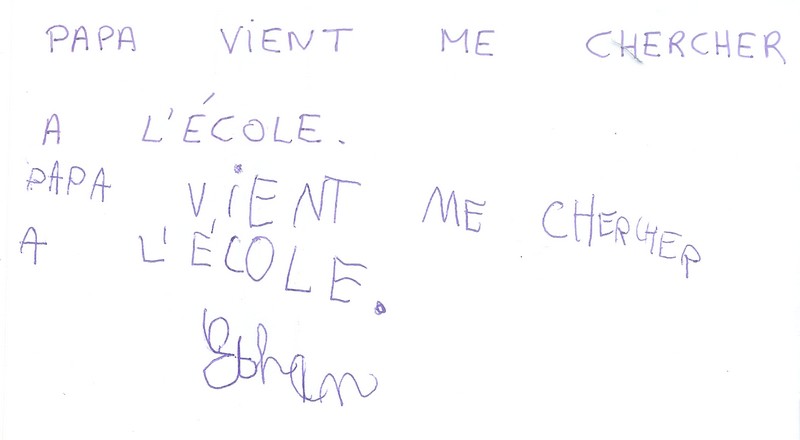 PAPA ViENT ME CHERCHER
A L'ÉCOLE.
PAPA ViENT ME CHERCHER
A L'ÉCOLE.
Ethan